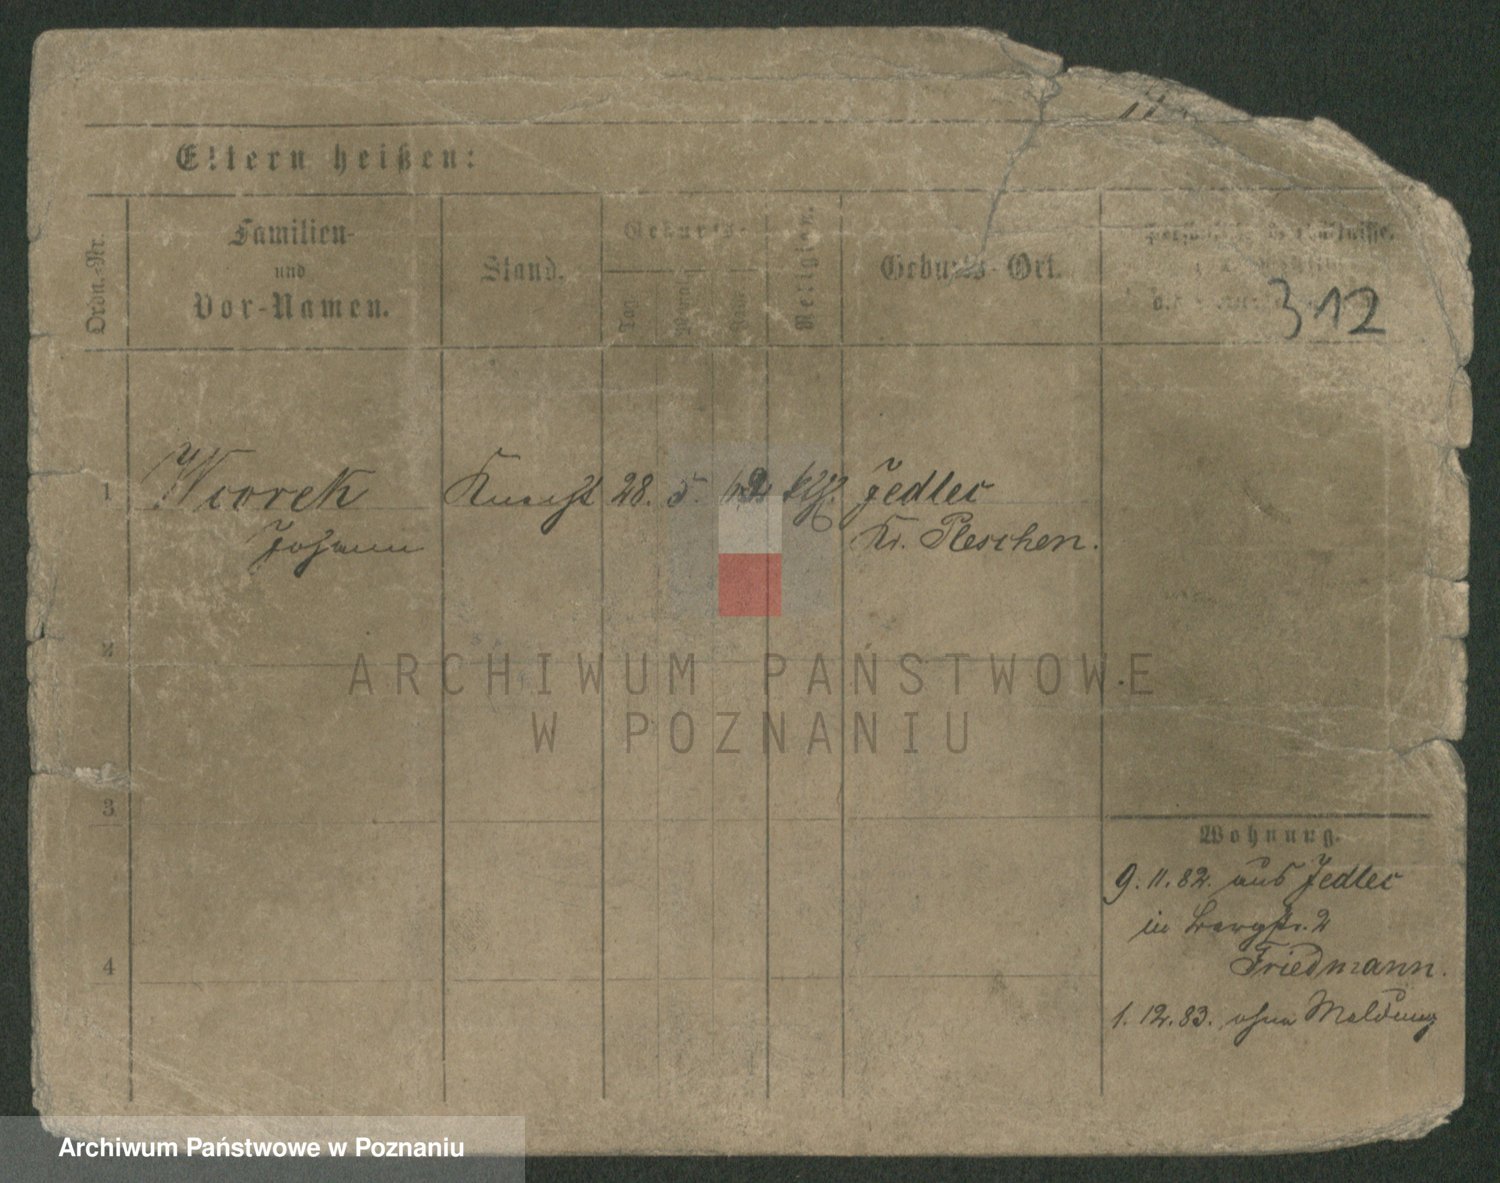 Eltern heißen:
Ordn.-Nr.
Familien-
und
Vor-Namen.
Stand.
Geburts-
Tag.
Monat.
Jahr.
Religion.
Geburts-Ort.
Persönliche Verhältnisse.
312
1
Wiorek
Knecht
28.
5.
kth.
Jedlec
Johann
Kr. Pleschen.
2
3
Wohnung.
9. 11. 82. aus Jedlec
in Bergstr. 2
4
Friedmann.
1. 12. 83. ohne Meldung
ARCHIWUM PAŃSTWOWE
W POZNANIU
Archiwum Państwowe w Poznaniu